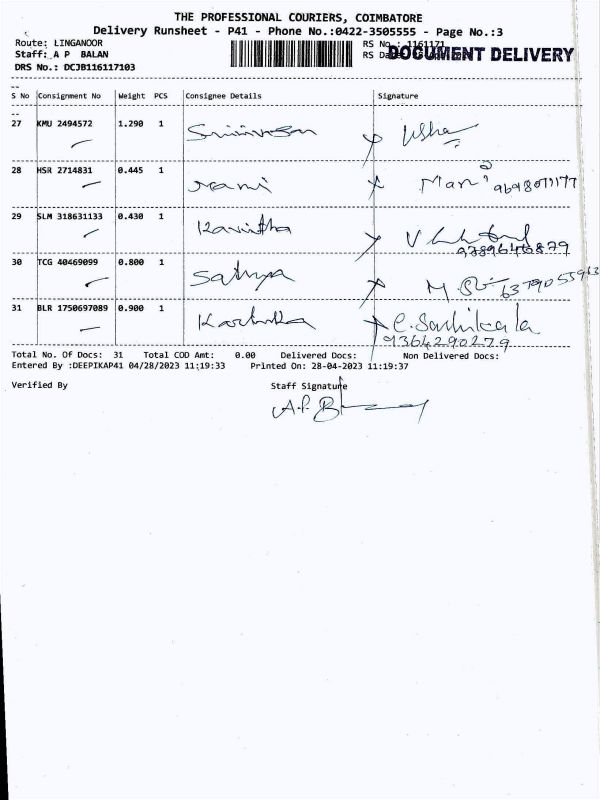 THE PROFESSIONAL COURIERS, COIMBATORE
Delivery Runsheet - P41 - Phone No.:0422-3505555 - Page No.:3
Route: LINGANOOR RS No.: 1161171
Staff: A P BALAN RS DOCUMENT DELIVERY
DRS No.: DCJB116117103
S No Consignment No Weight PCS Consignee Details Signature
27 KMU 2494572 1.290 1 Srinivasan Usha
28 HSR 2714831 0.445 1 rani Mani
29 SLM 318631133 0.430 1 Kavitha
9789646879
30 TCG 40469099 0.800 1 Sathya M
31 BLR 1750697089 0.900 1 Karthika C. Sashikala
9364290279
Total No. Of Docs: 31 Total COD Amt: 0.00 Delivered Docs: Non Delivered Docs:
Entered By :DEEPIKAP41 04/28/2023 11:19:33 Printed On: 28-04-2023 11:19:37
Verified By Staff Signature
A.P. B